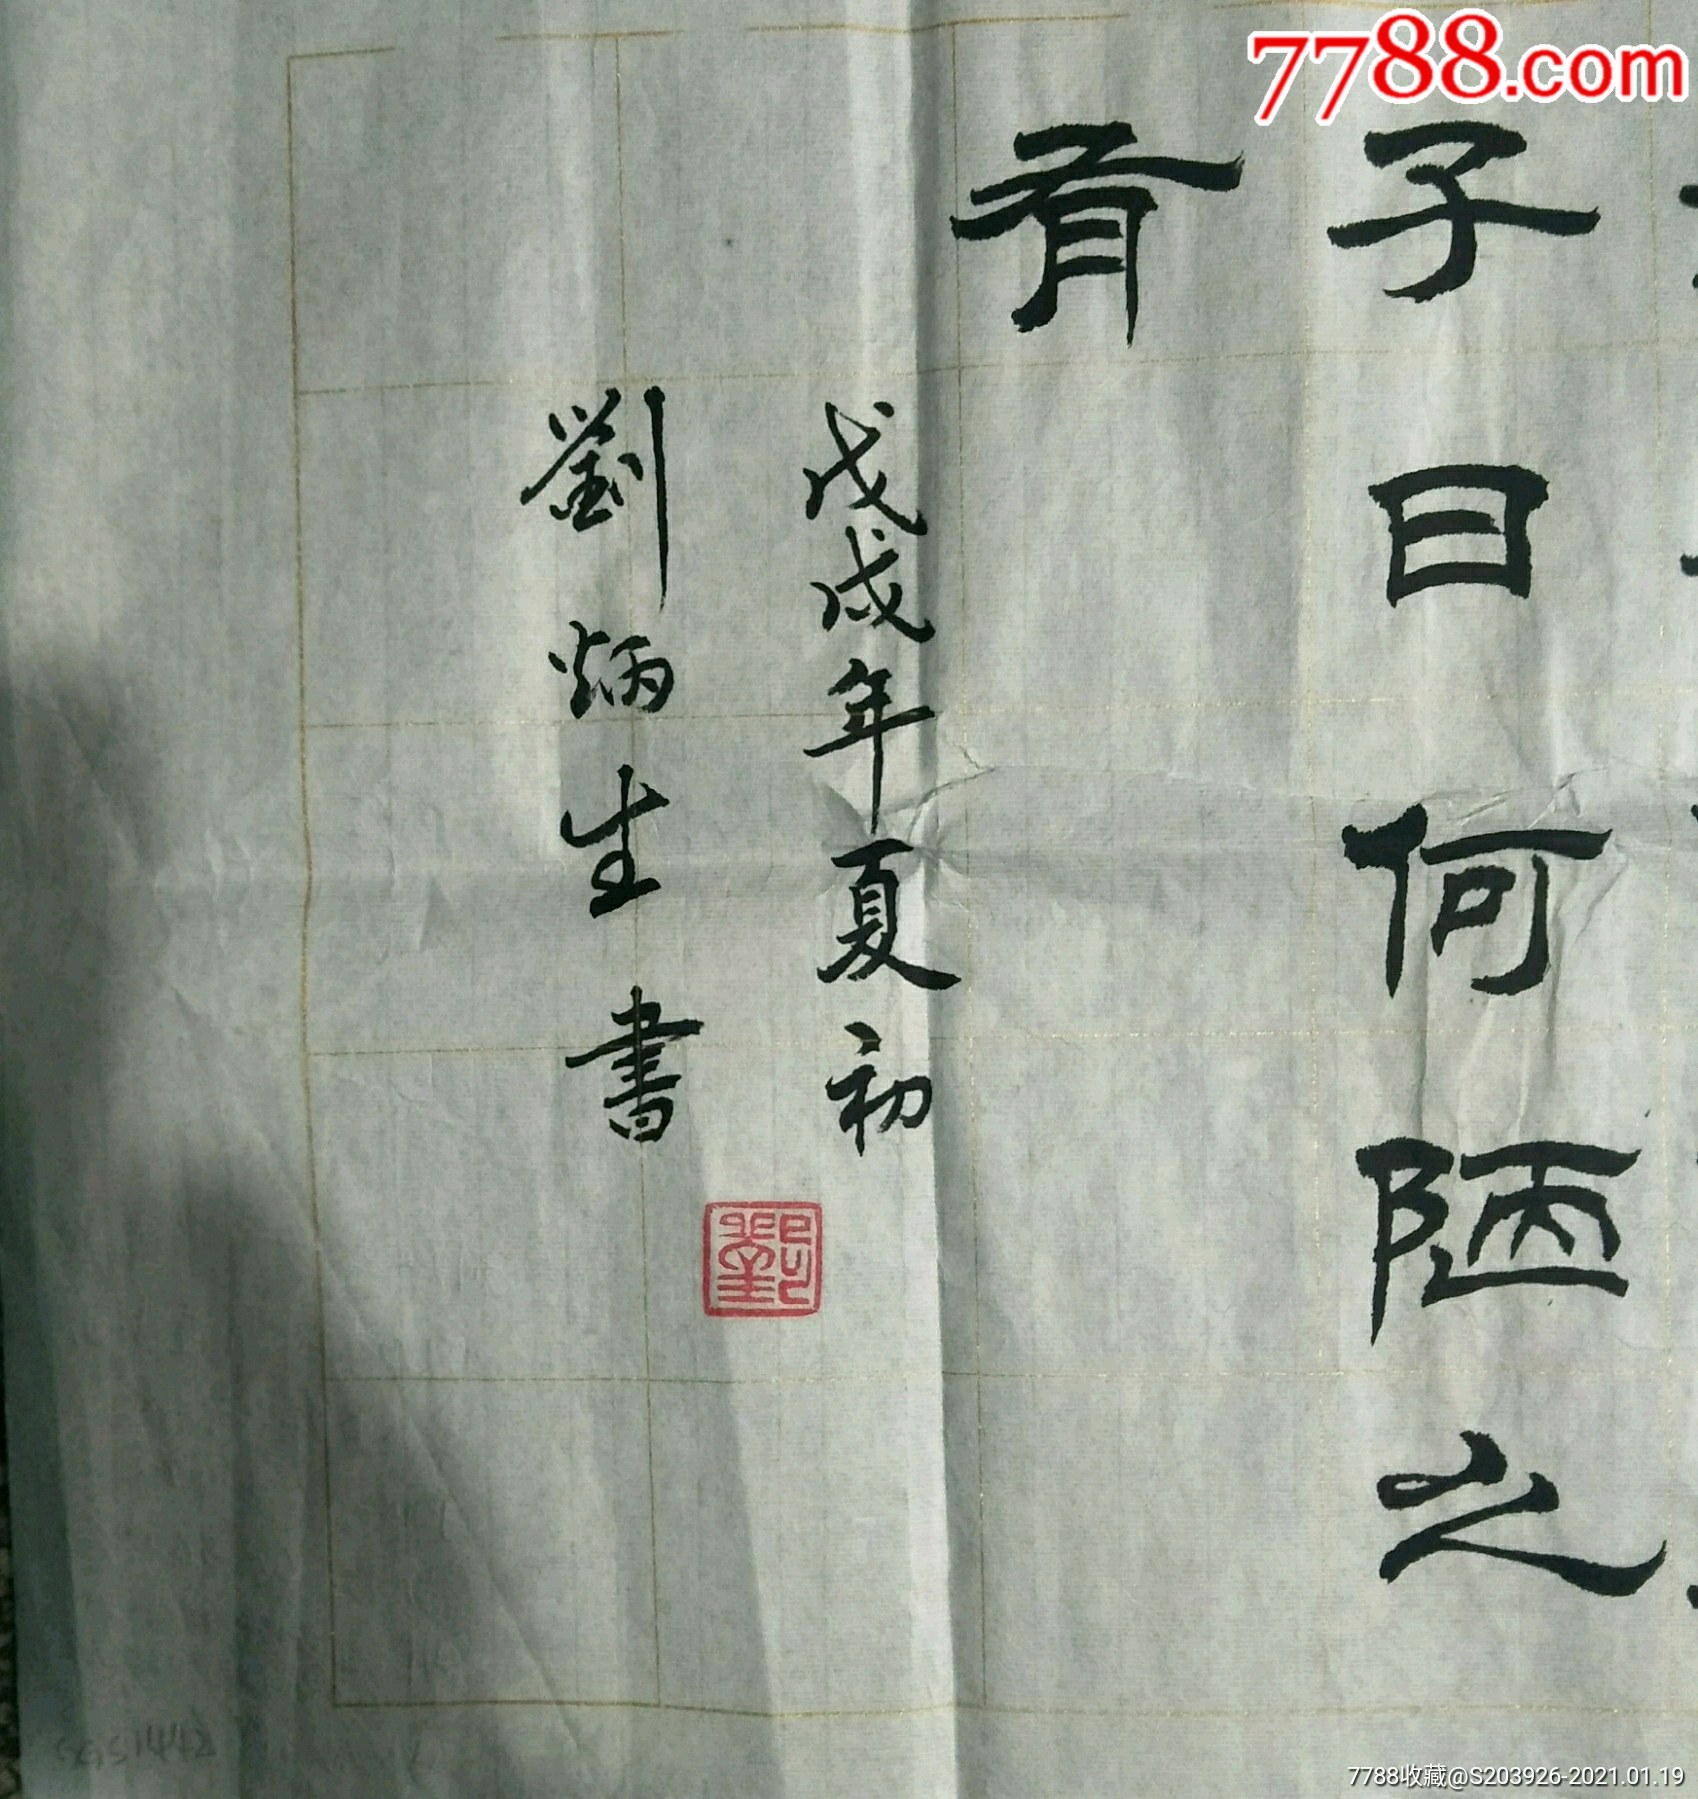 7788.com
子曰何陋之
有
戊戌年夏初
劉炳生書
劉
7788收藏@S203926-2021.01.19